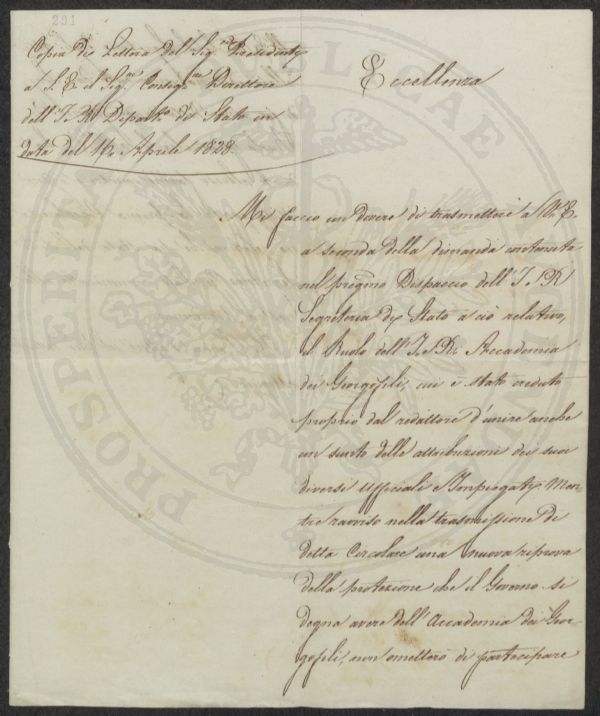 291
Copia di Lettera del Sig.re Presidente
a S. E. il Sig.re Consigre Direttore
dell' I. e R. Dipart.o di Stato in
data del Aprile 1828.
Eccellenza
Mi faccio un dovere di trasmettere a V. E.
a seconda della dimanda contenuta
nel pregmo Dispaccio dell' I. e R.
Segreteria di Stato a ciò relativo,
il Ruolo dell' I. e R. Accademia
dei Georgofili, cui è stato creduto
proprio dal redattore d'unire anche
un sunto delle attribuzioni dei suoi
diversi Uffiziali e Impiegati. Men-
tre ravviso nella trasmissione di
detta Circolare una nuova riprova
della protezione che il Governo si
degna avere dell' Accademia dei Geor-
gofili, non ometterò di partecipare
PROSPERITATI PUBLICAE